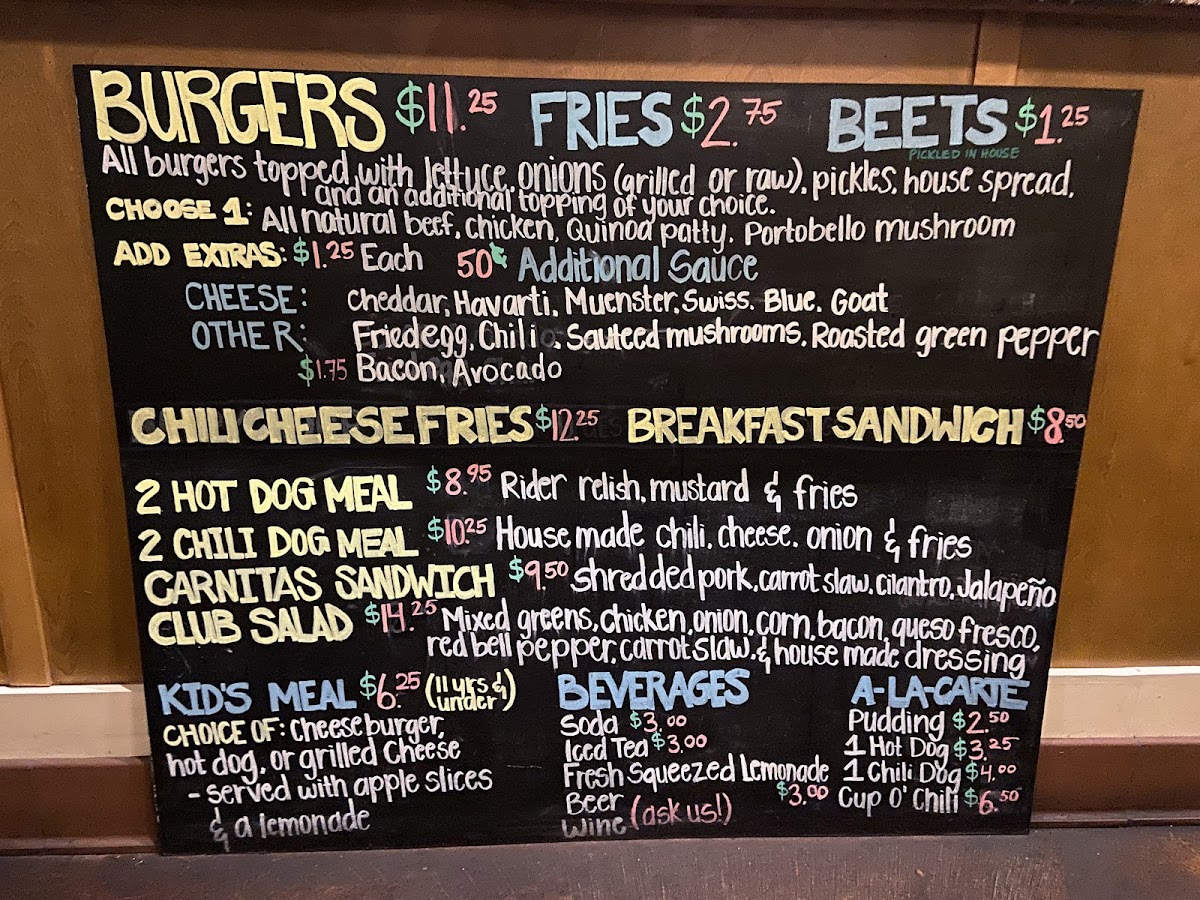 BURGERS $11.25 FRIES $2.75 BEETS $1.25
PICKLED IN HOUSE
All burgers topped with lettuce, onions (grilled or raw), pickles, house spread,
and an additional topping of your choice.
CHOOSE 1: All natural beef, chicken, Quinoa patty, Portobello mushroom
ADD EXTRAS: $1.25 Each 50¢ Additional Sauce
CHEESE: cheddar, Havarti, Muenster, Swiss, Blue, Goat
OTHER: Fried egg, Chili, Sauteed mushrooms, Roasted green pepper
$1.75 Bacon, Avocado
CHILI CHEESE FRIES $12.25 BREAKFAST SANDWICH $8.50
2 HOT DOG MEAL $8.95 Rider relish, mustard & fries
2 CHILI DOG MEAL $10.25 House made chili, cheese, onion & fries
CARNITAS SANDWICH $9.50 shredded pork, carrot slaw, cilantro, Jalapeño
CLUB SALAD $14.25 Mixed greens, chicken, onion, corn, bacon, queso fresco,
red bell pepper, carrot slaw, & house made dressing
KID'S MEAL $6.25 (11 yrs & under)
CHOICE OF: Cheeseburger,
hot dog, or grilled cheese
- served with apple slices
& a lemonade
BEVERAGES
Soda $3.00
Iced Tea $3.00
Fresh Squeezed Lemonade
$3.00
Beer
Wine (ask us!)
A-LA-CARTE
Pudding $2.50
1 Hot Dog $3.25
1 Chili Dog $4.00
Cup O' Chili $6.50